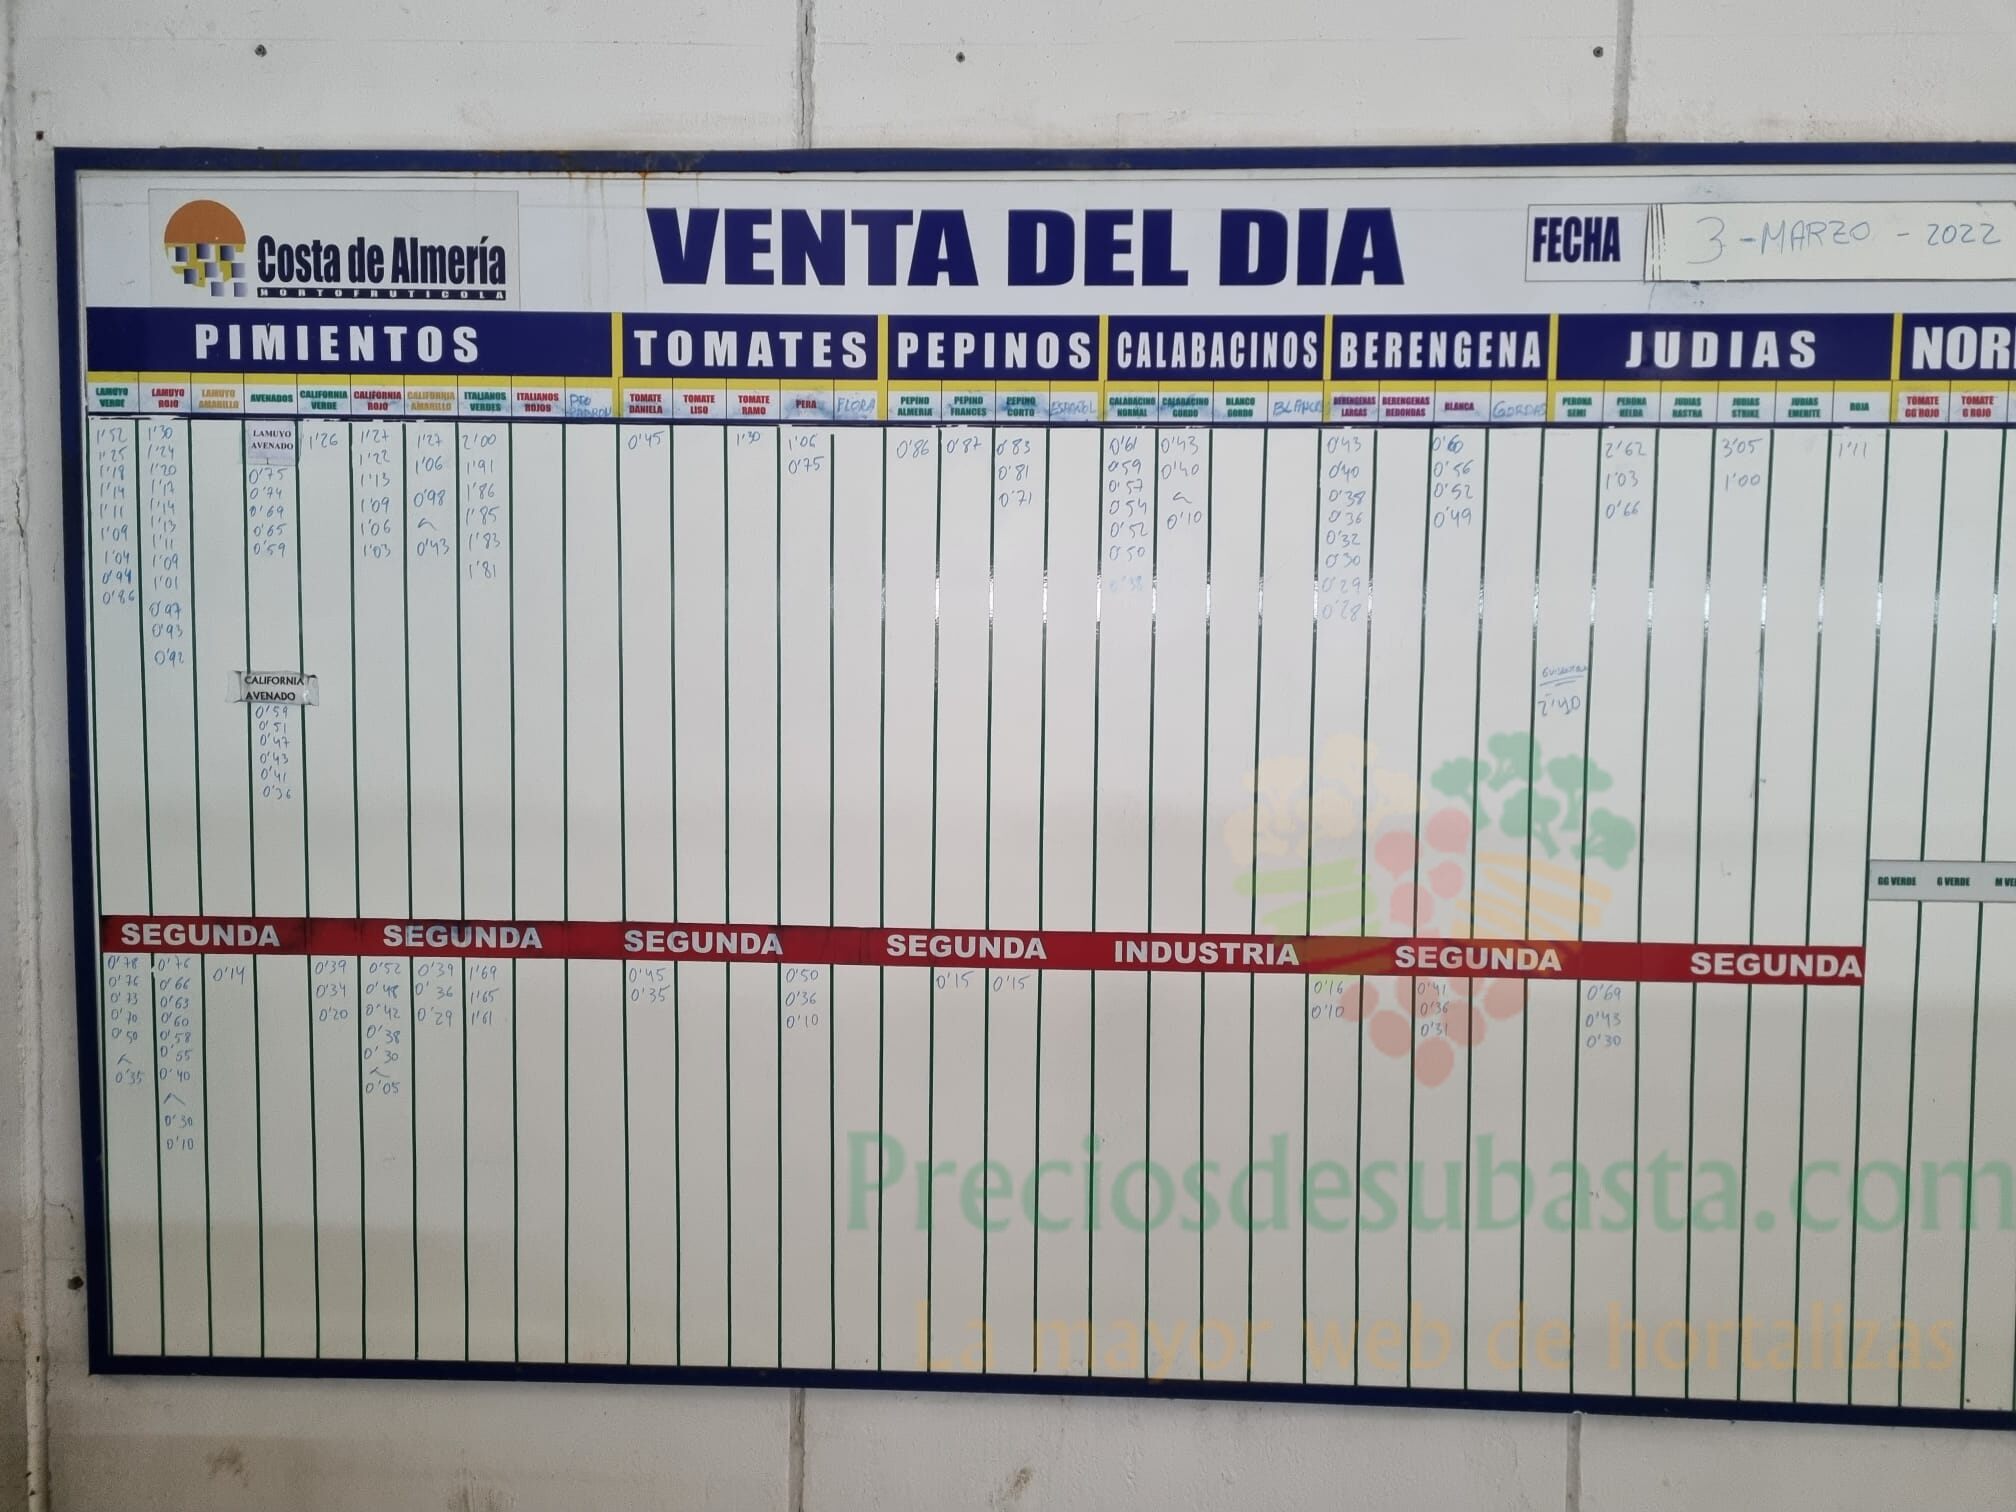 Costa de Almería
HORTOFRUTICOLA
VENTA DEL DIA
FECHA
3 - MARZO - 2022
PIMIENTOS TOMATES PEPINOS CALABACINOS BERENGENA JUDIAS NOR
LAMUYO VERDE
LAMUYO ROJO
LAMUYO AMARILLO
AVENADOS
CALIFORNIA VERDE
CALIFORNIA ROJO
CALIFORNIA AMARILLO
ITALIANOS VERDES
ITALIANOS ROJOS
PADRON
TOMATE DANIELA
TOMATE LISO
TOMATE RAMO
PERA
FLORA
PEPINO ALMERIA
PEPINO FRANCES
PEPINO CORTO
ESPAÑOL
CALABACINO NORMAL
CALABACINO GORDO
BLANCO GORDO
BLANCO
BERENGENAS LARGAS
BERENGENAS REDONDAS
BLANCA
GORDAS
PERONA SEMI
PERONA HELDA
JUDIAS RASTRA
JUDIAS STRIKE
JUDIAS EMERITE
ROJA
TOMATE GG ROJO
TOMATE G ROJO
1'52
1'25
1'18
1'14
1'11
1'09
1'04
0'94
0'86
1'30
1'24
1'20
1'17
1'14
1'13
1'11
1'09
1'01
0'97
0'93
0'92
LAMUYO
AVENADO
0'75
0'74
0'69
0'65
0'59
CALIFORNIA
AVENADO
0'59
0'51
0'47
0'43
0'41
0'36
1'26
1'27
1'22
1'13
1'09
1'06
1'03
1'27
1'06
0'98
0'43
2'00
1'91
1'86
1'85
1'83
1'81
0'45
1'30
1'06
0'75
0'86
0'87
0'83
0'81
0'71
0'61
0'59
0'57
0'54
0'52
0'50
0'38
0'43
0'40
0'10
0'43
0'40
0'38
0'36
0'32
0'30
0'29
0'28
0'60
0'56
0'52
0'49
2'40
2'62
1'03
0'66
3'05
1'00
1'11
GG VERDE G VERDE M VE
SEGUNDA SEGUNDA SEGUNDA SEGUNDA INDUSTRIA SEGUNDA SEGUNDA
0'78
0'76
0'73
0'70
0'50
0'35
0'76
0'66
0'63
0'60
0'58
0'55
0'40
0'30
0'10
0'14
0'39
0'34
0'20
0'52
0'48
0'42
0'38
0'30
0'05
0'39
0'36
0'29
1'69
1'65
1'61
0'45
0'35
0'50
0'36
0'10
0'15
0'15
0'16
0'10
0'41
0'36
0'31
0'69
0'43
0'30
Preciosdesubasta.com
La mayor web de hortalizas